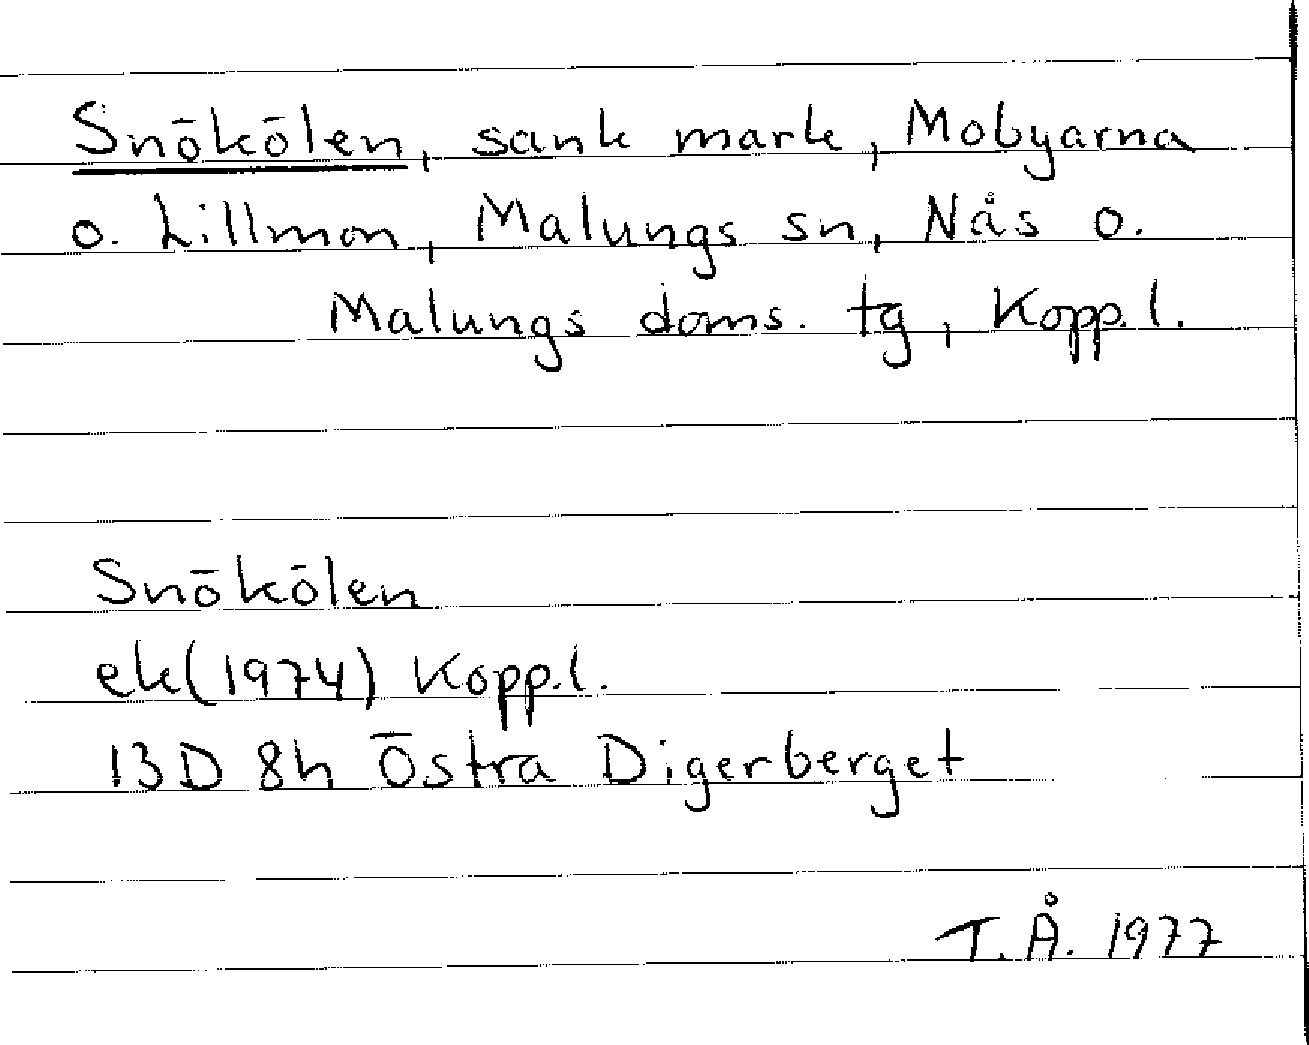 Snökölen, sank mark, Mobyarna
o. Lillmon, Malungs sn, Nås o.
Malungs doms. tg, Kopp.l.
Snökölen
ek(1974) Kopp.l.
13D 8h Östra Digerberget
T.Å. 1977